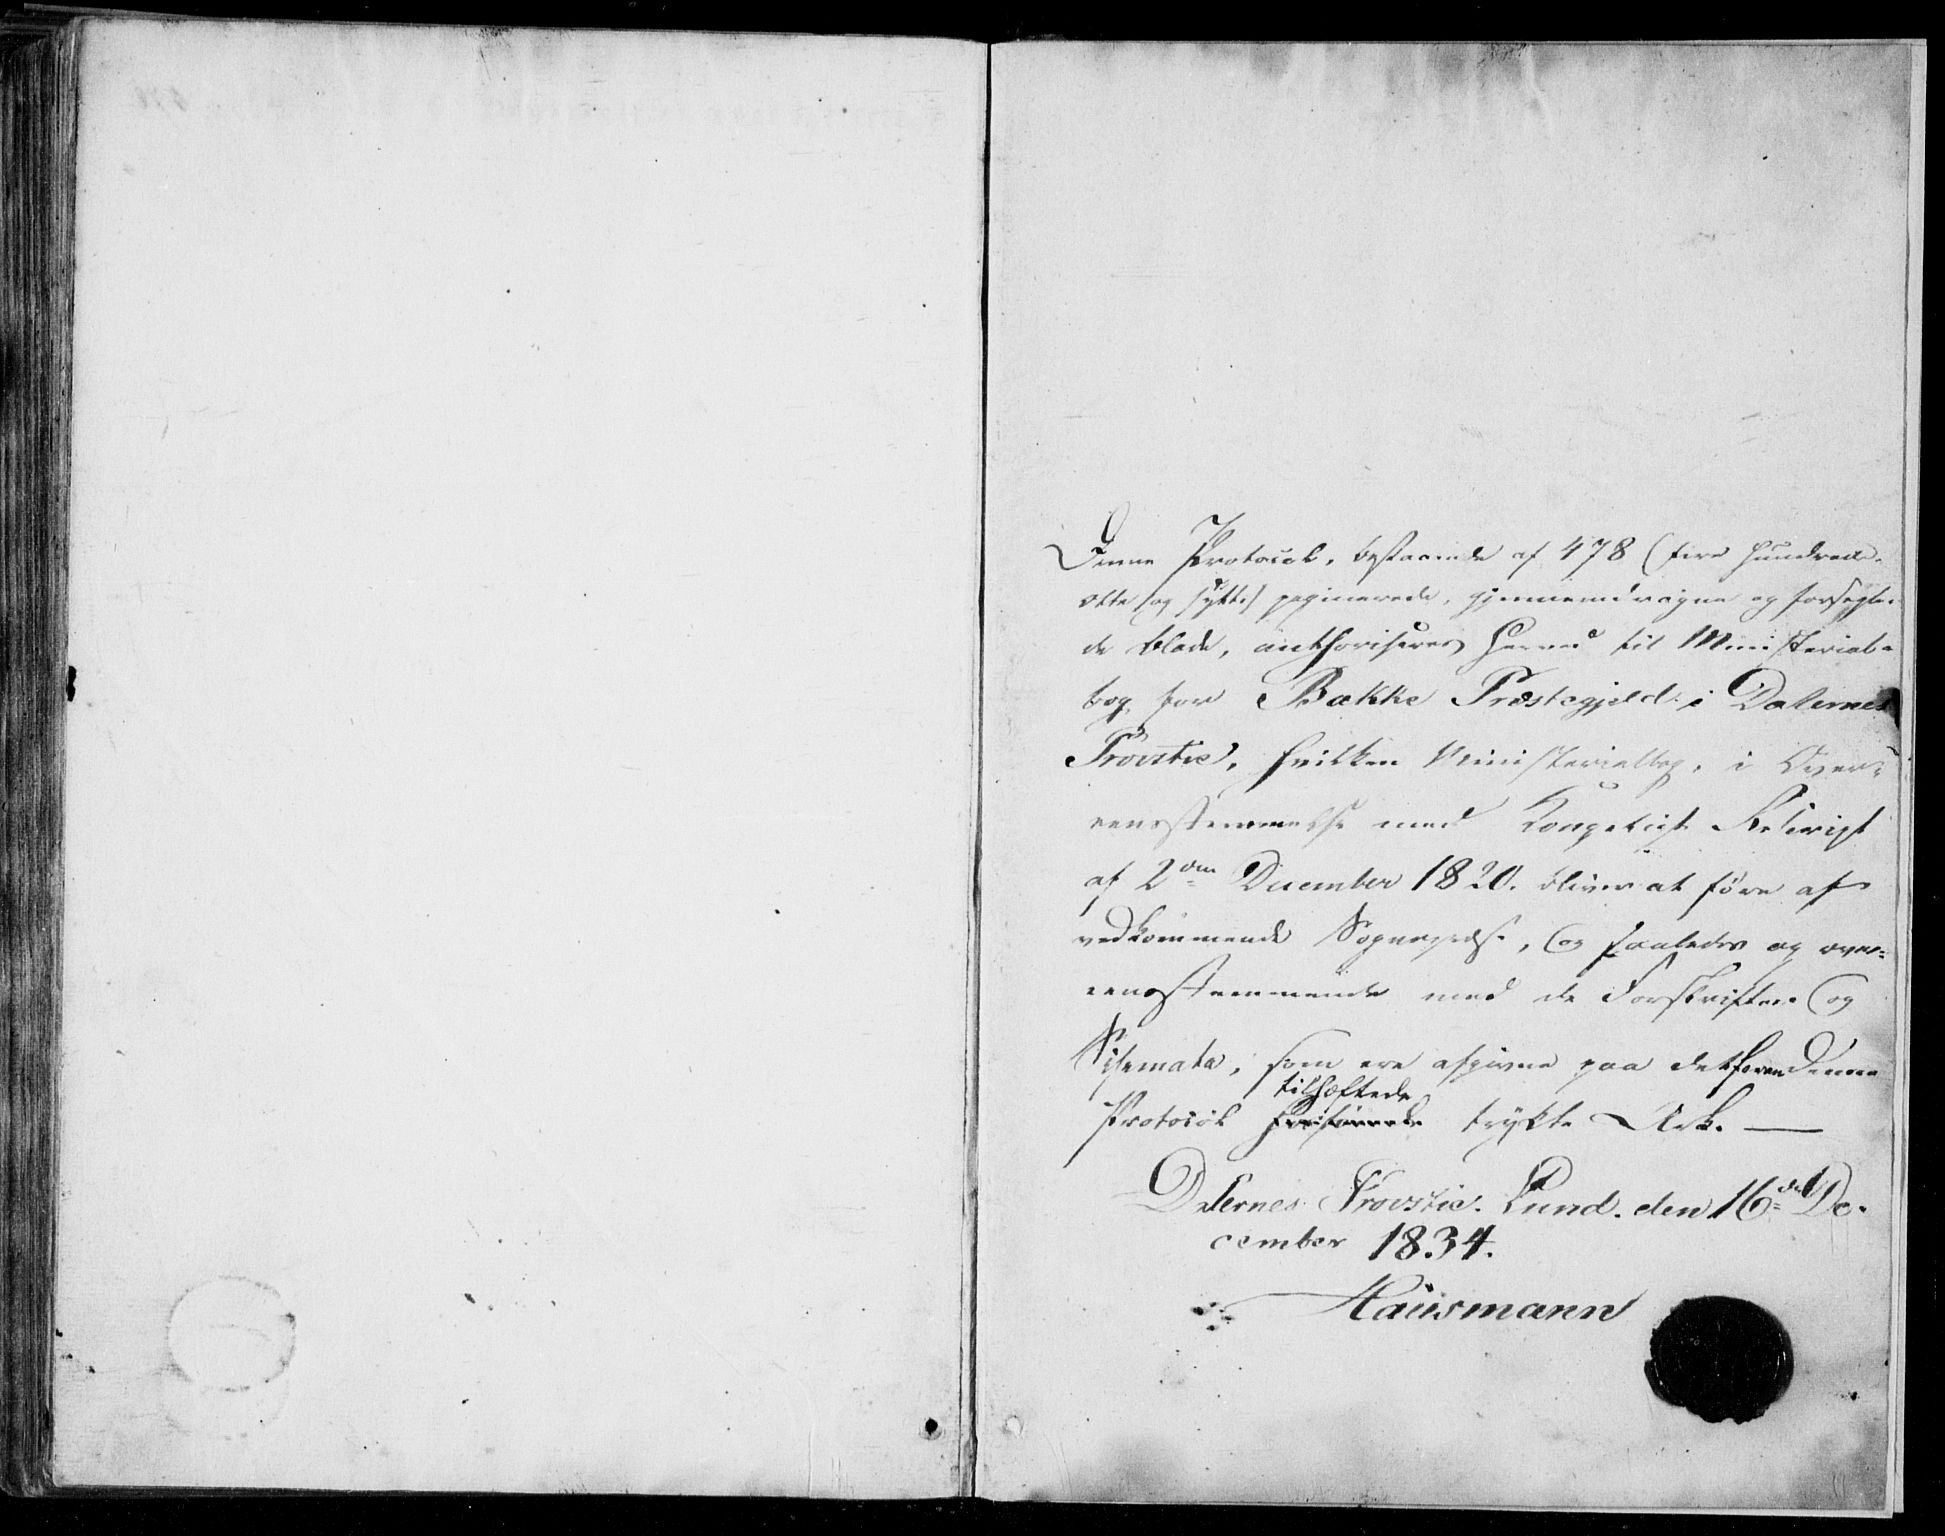 Denne Protocol, bestaaende af 478 (fire hundrede
otte og sytti) paginerede, gjennemdragne og forsegle-
de Blade, authoriseres herved til Ministerial-
bog for Bakke Præstegjeld i Dalernes
Provstie, hvilken Ministerialbog, i Over-
eensstemmelse med Kongeligt Rescript
af 2den December 1820. bliver at føre af
vedkommende Sognepræst, og saaledes og over-
eensstemmende med de Forskrifter og
Schemata, som ere afgivne paa det foran denne
Protocol tilhæftede trykte Ark. —
Dalernes Provstie. Lund. den 16de De-
cember 1834.
Hausmann